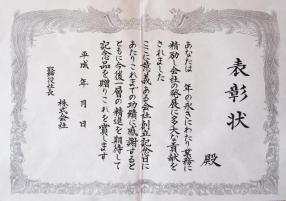 表彰状
殿
あなたは　年の永きにわたり業務に
精励し会社の発展に多大な貢献を
されました
ここに意義ある会社創立記念日に
あたりこれまでの功績に感謝すると
ともに今後一層の精進を期待して
記念品を贈りこれを賞します
平成　年　月　日
株式会社
取締役社長